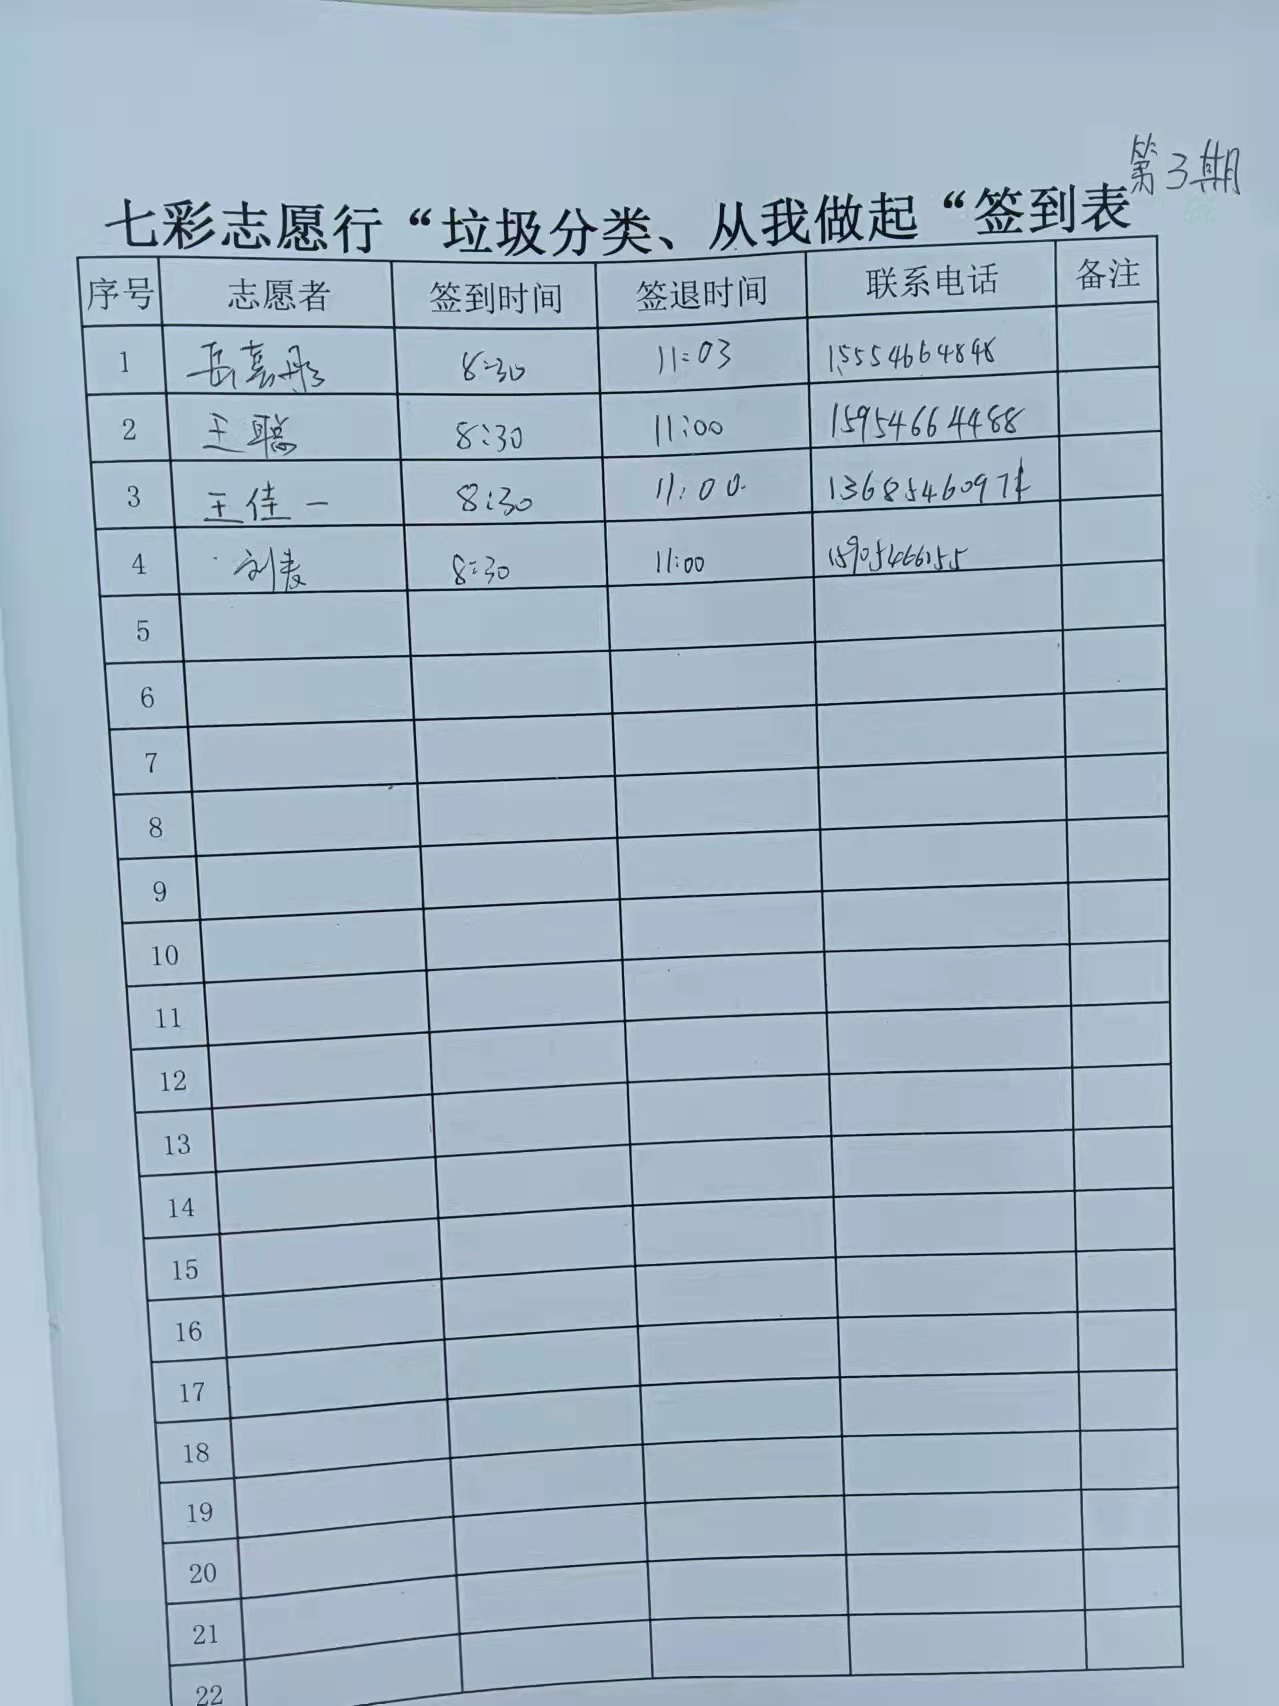 第3期
七彩志愿行“垃圾分类、从我做起“签到表
序号 志愿者 签到时间 签退时间 联系电话 备注
1 岳嘉彤 8:30 11:03 15554664848
2 王聪 8:30 11:00 15954664488
3 王佳一 8:30 11:00 1368546097
4 刘 8:30 11:00 15905466155
5
6
7
8
9
10
11
12
13
14
15
16
17
18
19
20
21
22